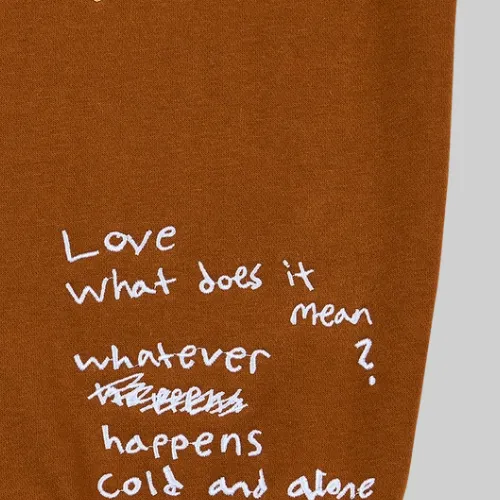 Love
What does it
mean
whatever ?
happens
cold and alone